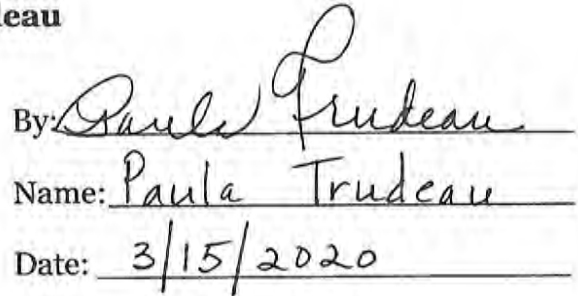 leau
By: Paula Trudeau
Name: Paula Trudeau
Date: 3/15/2020